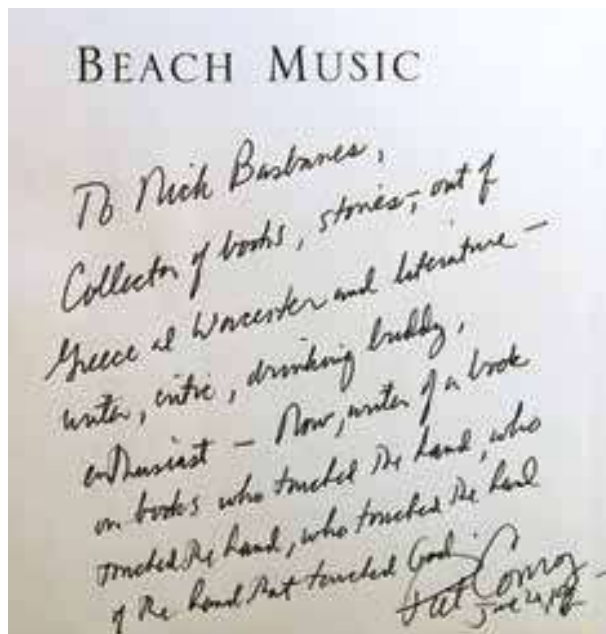 BEACH MUSIC
To Nick Basbanes,
Collector of books, stories, out of
Greece al Worcester and literature —
writer, critic, drinking buddy,
enthusiast — Now, writer of a book
on books who touched the hand, who
touched the hand, who touched the hand
of the hand that touched God.
Pat Conroy